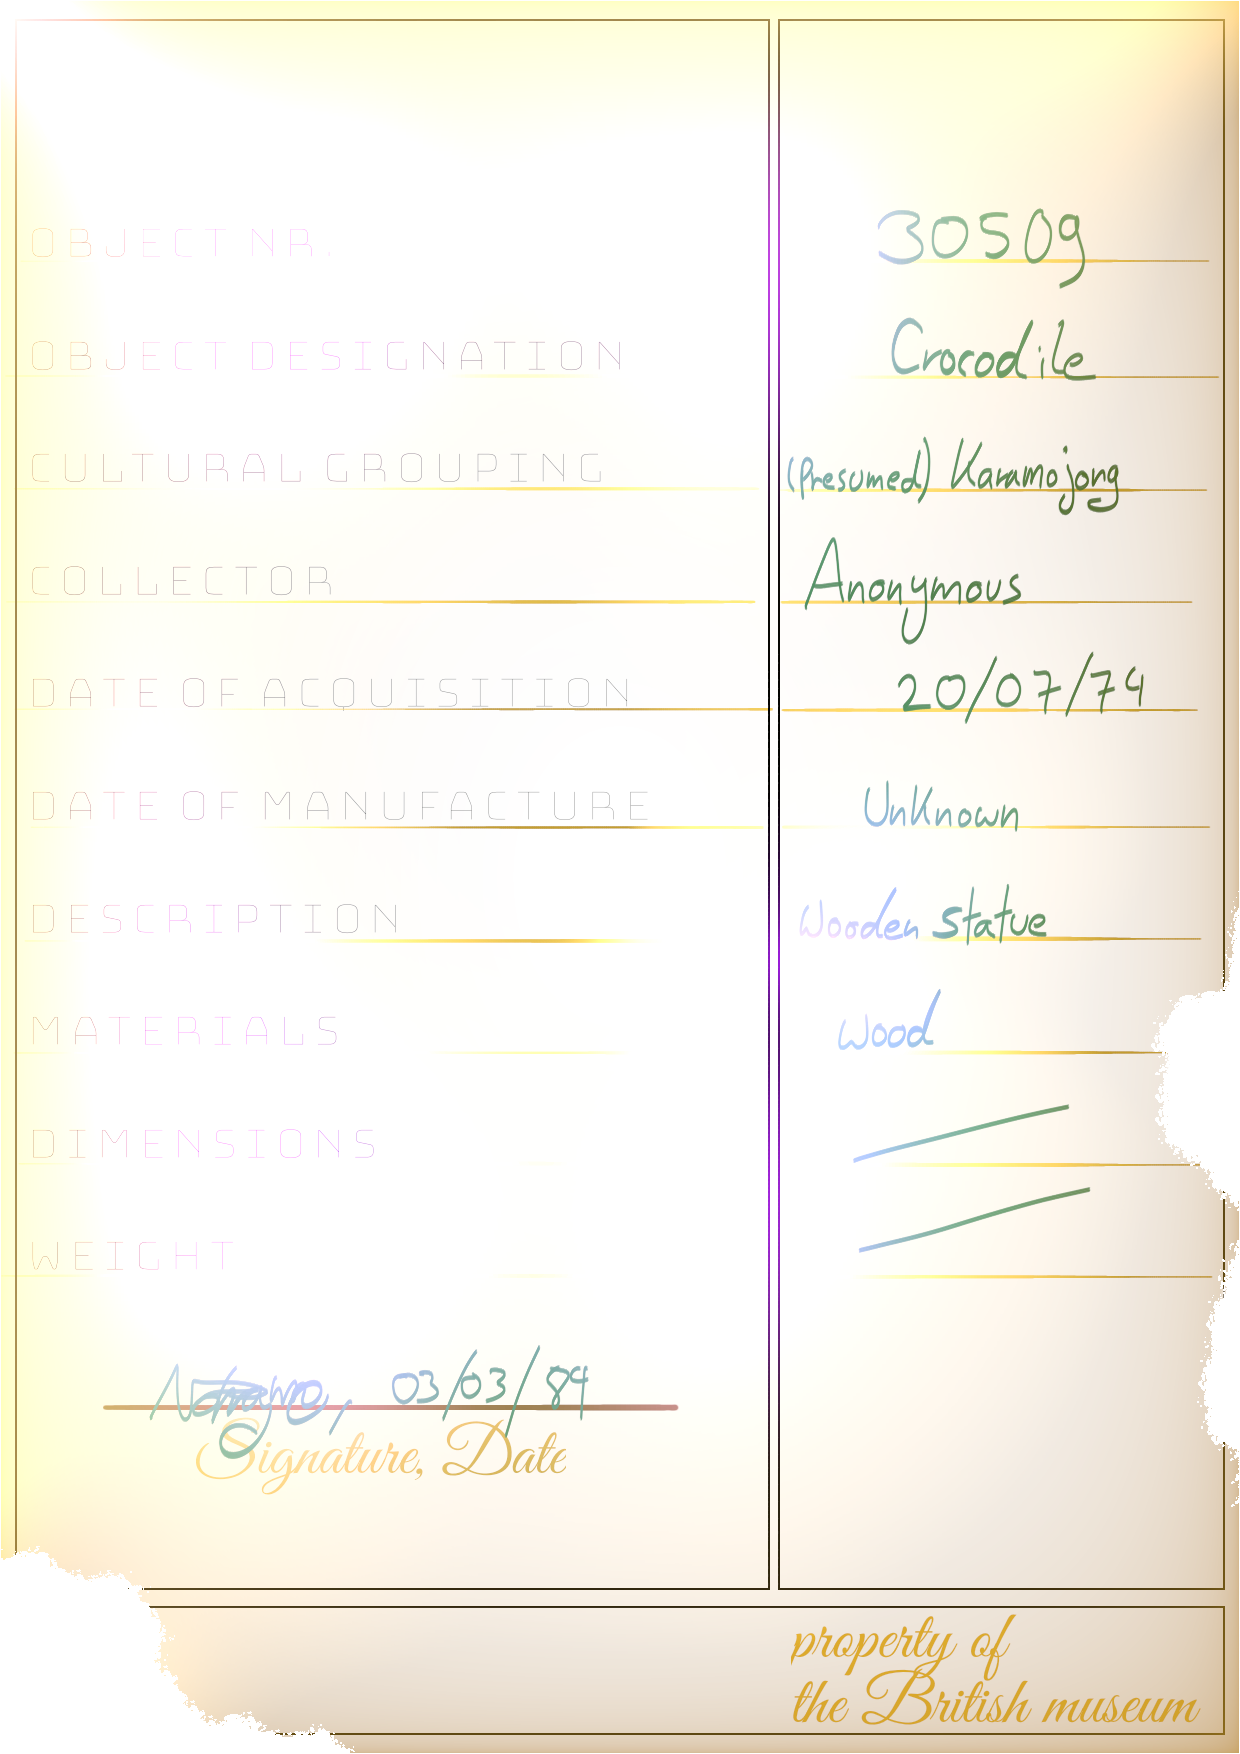 OBJECT NR. 30509
OBJECT DESIGNATION Crocodile
CULTURAL GROUPING (Presumed) Karamojong
COLLECTOR Anonymous
DATE OF ACQUISITION 20/07/74
DATE OF MANUFACTURE Unknown
DESCRIPTION Wooden statue
MATERIALS Wood
DIMENSIONS
WEIGHT
03/03/84
Signature, Date
property of
the British museum